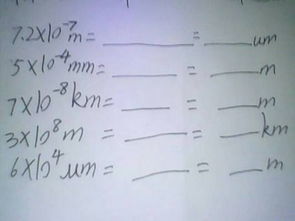 7.2X10⁻⁷m= ______ = ____um
5X10⁻⁴mm= ______ = ____m
7X10⁻⁸km= ______ = ____m
3X10⁸m = ______ = ____km
6X10⁴um= ______ = ____m